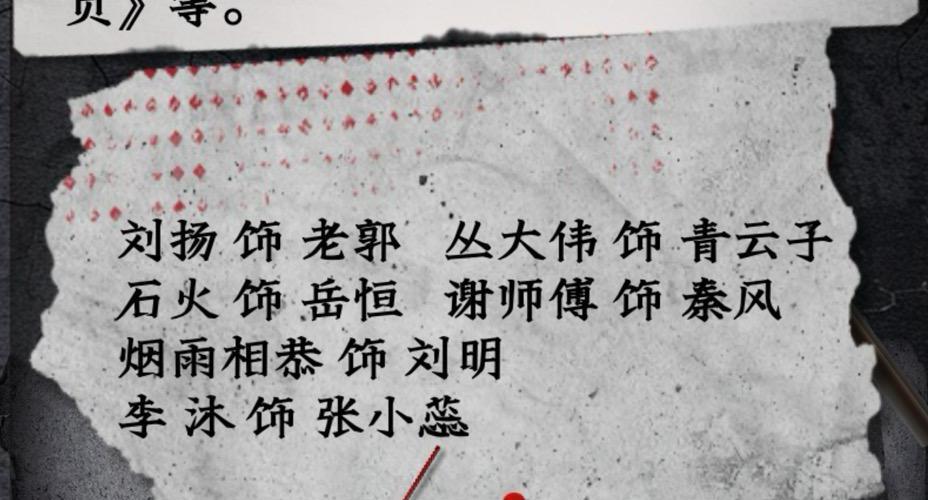 页》等。
刘扬 饰 老郭 丛大伟 饰 青云子
石火 饰 岳恒 谢师傅 饰 秦风
烟雨相恭 饰 刘明
李 沐 饰 张小蕊